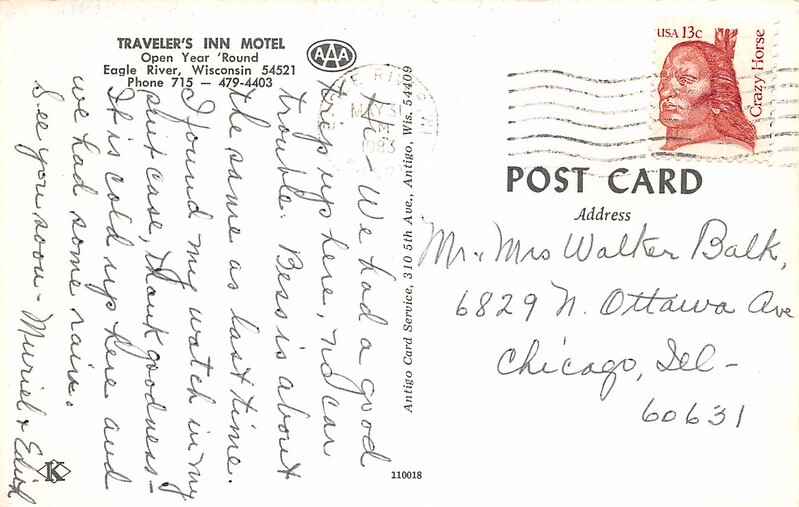 TRAVELER'S INN MOTEL
Open Year 'Round
Eagle River, Wisconsin 54521
Phone 715 — 479-4403
AAA
Hi - We had a good
trip up here, no car
trouble. Bess is about
the same as last time.
I found my watch in my
suit case, thank goodness -
It is cold up here and
we had some rain.
See you soon - Muriel & Edith
Antigo Card Service, 310 5th Ave., Antigo, Wis. 54409
110018
MAY 31
1983
USA 13c
Crazy Horse
POST CARD
Address
Mr. Mrs Walker Balk,
6829 N. Ottawa Ave
Chicago, Ill -
60631